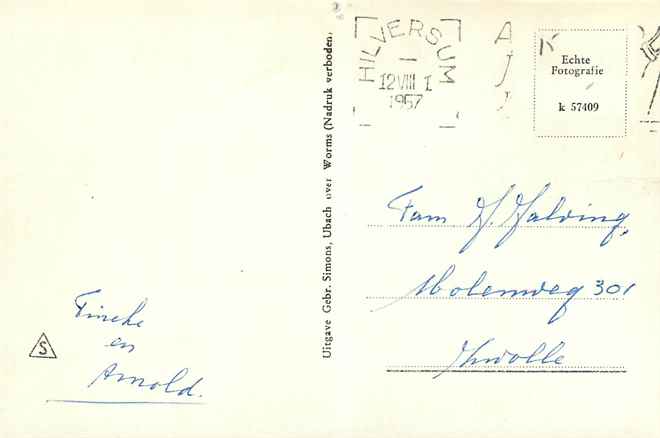 HILVERSUM
12 VIII 1
1957
Echte
Fotografie
k 57409
Uitgave Gebr. Simons, Ubach over Worms (Nadruk verboden.
Fam H. Halving,
Molenweg 301
Zwolle
Tineke
en
Arnold.
S